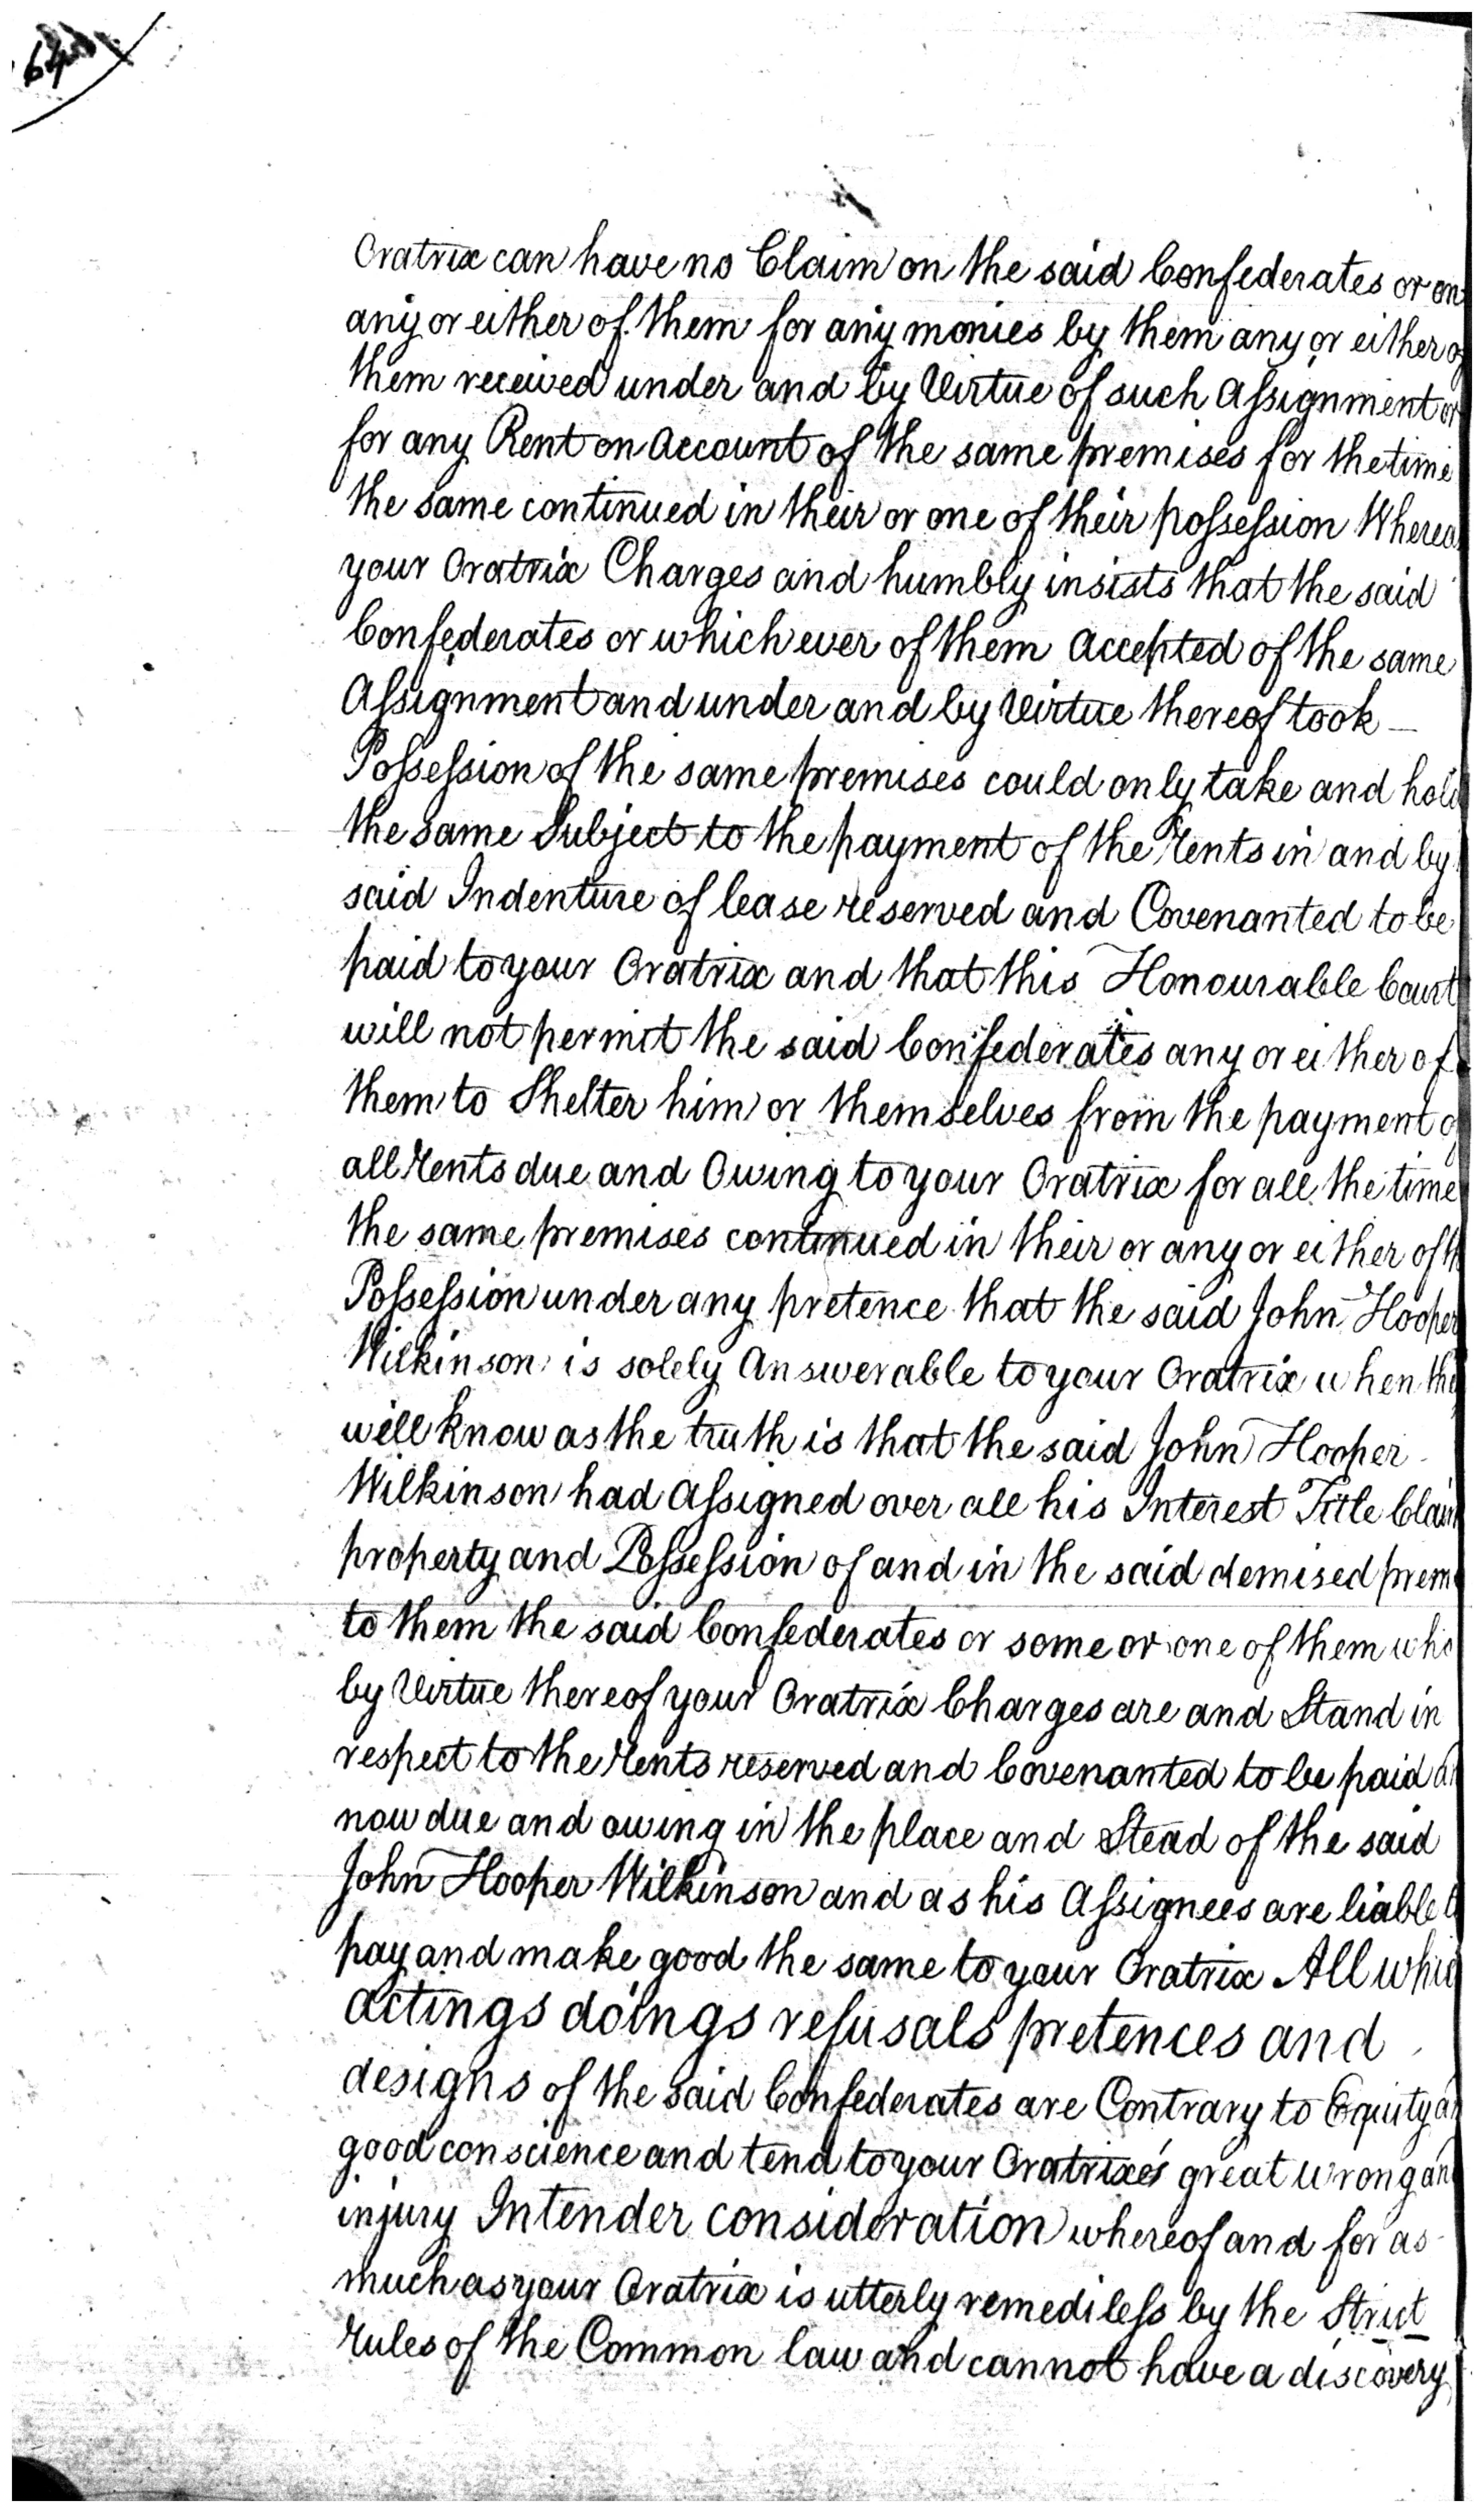 Oratrix can have no Claim on the said Confederates or on
any or either of them for any monies by them any or either of
them received under and by Virtue of such Assignment or
for any Rent on Account of the same premises for the time
the same continued in their or one of their possession Wherea
your Oratrix Charges and humbly insists that the said
Confederates or which ever of them Accepted of the same
Assignment and under and by Virtue thereof took
Possession of the same premises could only take and hold
the same Subject to the payment of the Rents in and by
said Indenture of lease reserved and Covenanted to be
paid to your Oratrix and that this Honourable Court
will not permit the said Confederates any or either of
them to Shelter him or themselves from the payment o
all Rents due and Owing to your Oratrix for all the time
the same premises continued in their or any or either of th
Possession under any pretence that the said John Hooper
Wilkinson is solely Answerable to your Oratrix when the
well know as the truth is that the said John Hooper
Wilkinson had Assigned over all his Interest Title Claim
property and Possession of and in the said demised prem
to them the said Confederates or some or one of them who
by Virtue thereof your Oratrix Charges are and Stand in
respect to the Rents reserved and Covenanted to be paid a
now due and owing in the place and Stead of the said
John Hooper Wilkinson and as his Assignees are liable t
pay and make good the same to your Oratrix All whic
actings doings refusals pretences and
designs of the said Confederates are Contrary to Equity a
good conscience and tend to your Oratrixes great wrong an
injury In tender consideration whereof and for as
much as your Oratrix is utterly remediless by the Strict
Rules of the Common law and cannot have a discovery